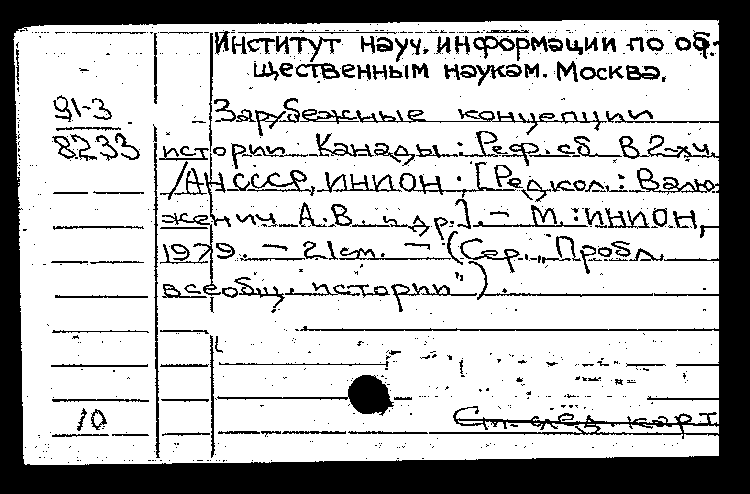 Институт науч. информации по об-
щественным наукам. Москва.
91-3 Зарубежные концепции
8233 истории Канады : Реф. сб. В 2-х ч.
/АН СССР, ИНИОН ; [Редкол. : Валю-
женич А.В. и др.]. – М. : ИНИОН,
1979. – 21 см. – (Сер. „Пробл.
всеобщ. истории").
10 См. след. карт